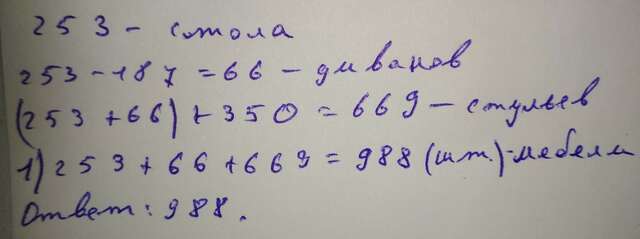 253 - стола
253 - 187 = 66 - диванов
(253 + 66) + 350 = 669 - стульев
1) 253 + 66 + 669 = 988 (шт.) - мебели
Ответ: 988.